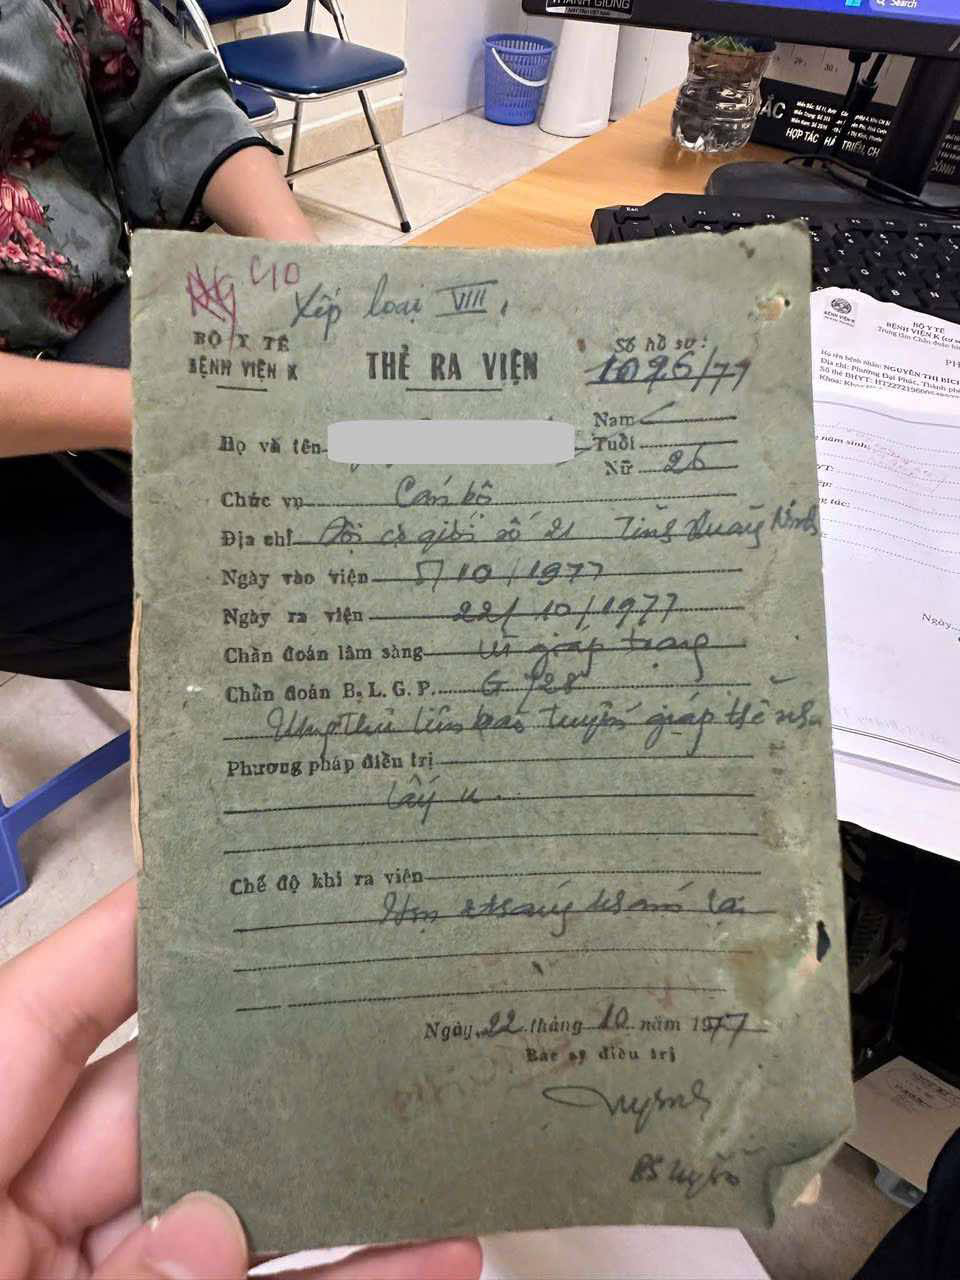 C10
Xếp loại VIII.
BỘ Y TẾ
BỆNH VIỆN K
THẺ RA VIỆN
Số hồ sơ:
1096/77
Họ và tên
Nam
Tuổi
Nữ 26
Chức vụ Cán bộ
Địa chỉ Đội cơ giới số 21 Tỉnh Quảng Ninh
Ngày vào viện 5/10/1977
Ngày ra viện 22/10/1977
Chẩn đoán lâm sàng U giáp trạng
Chẩn đoán B.L.G.P. G 728
Ung thư liên bào tuyến giáp thể nhú
Phương pháp điều trị
lấy u.
Chế độ khi ra viện
Hẹn 2 tháng khám lại
Ngày 22 tháng 10 năm 1977
Bác sỹ điều trị
THÁNH GIÓNG
Search
HỢP TÁC
BỘ Y TẾ
BỆNH VIỆN K
Họ tên bệnh nhân: NGUYỄN THỊ BÍCH
Địa chỉ: Phường Đại Phúc, Thành phố
Số thẻ BHYT:
Khoa:
năm sinh:
Ngày